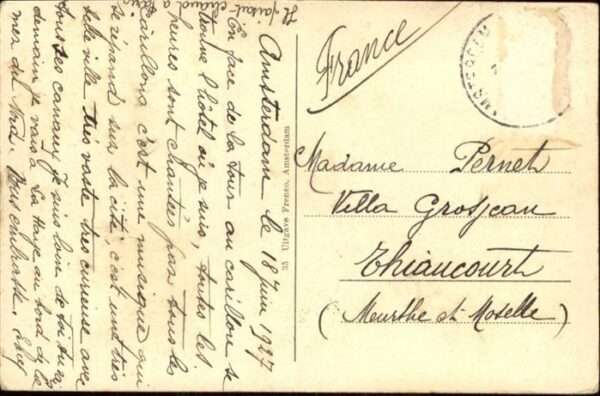 Il faisait
chaud à
Amsterdam le 18 Juin 1927
En face de la tour au carillon se
trouve l'hôtel où je suis, toutes les
heures sont chantées par tous les
carillons c'est une musique qui
se répand sur la cité, c'est une très
belle ville très vaste très curieuse avec
tous ses canaux. Je suis loin de toi
demain je vais à La Haye au bord de la
mer du Nord. embrasse.
33 Uitgave Fremco, Amsterdam
France
AMSTERDAM
Madame Pernet
Villa Grosjean
Thiaucourt
(Meurthe et Moselle)